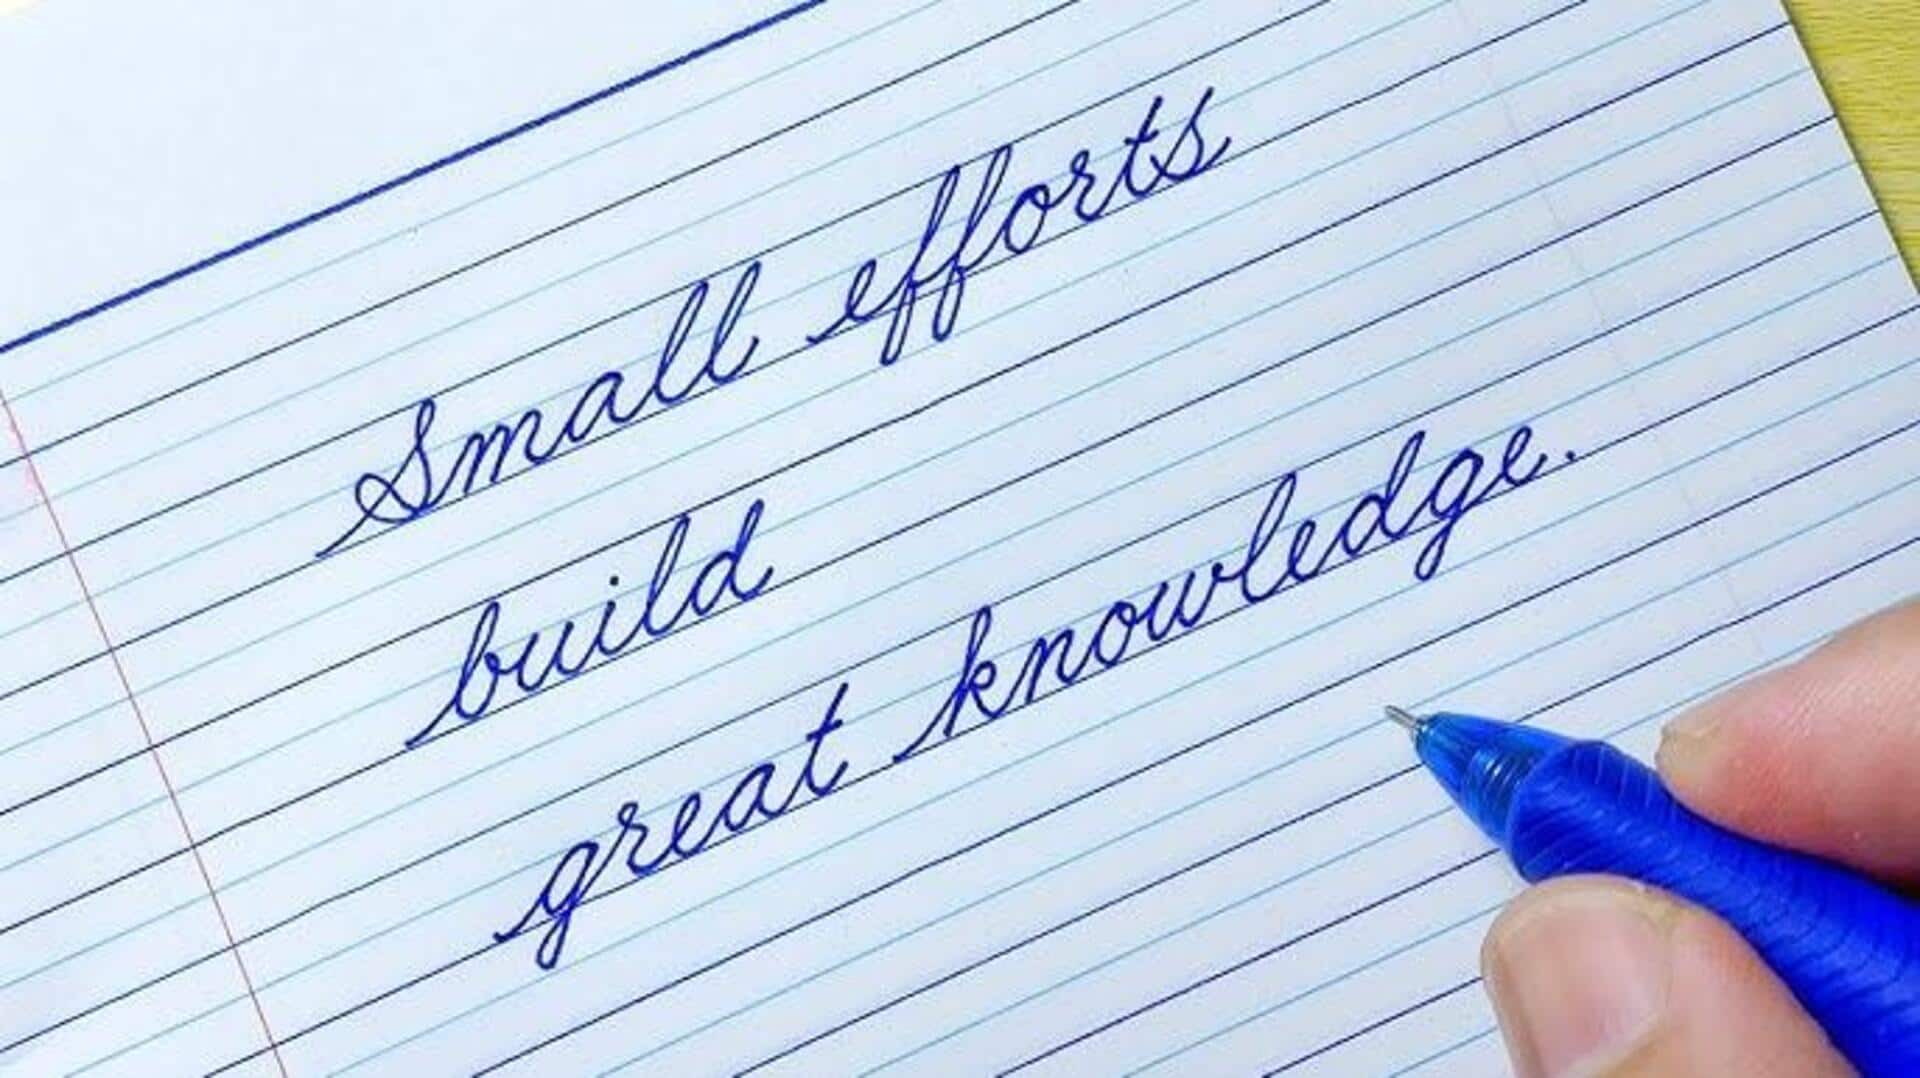 Small efforts
build
great knowledge.